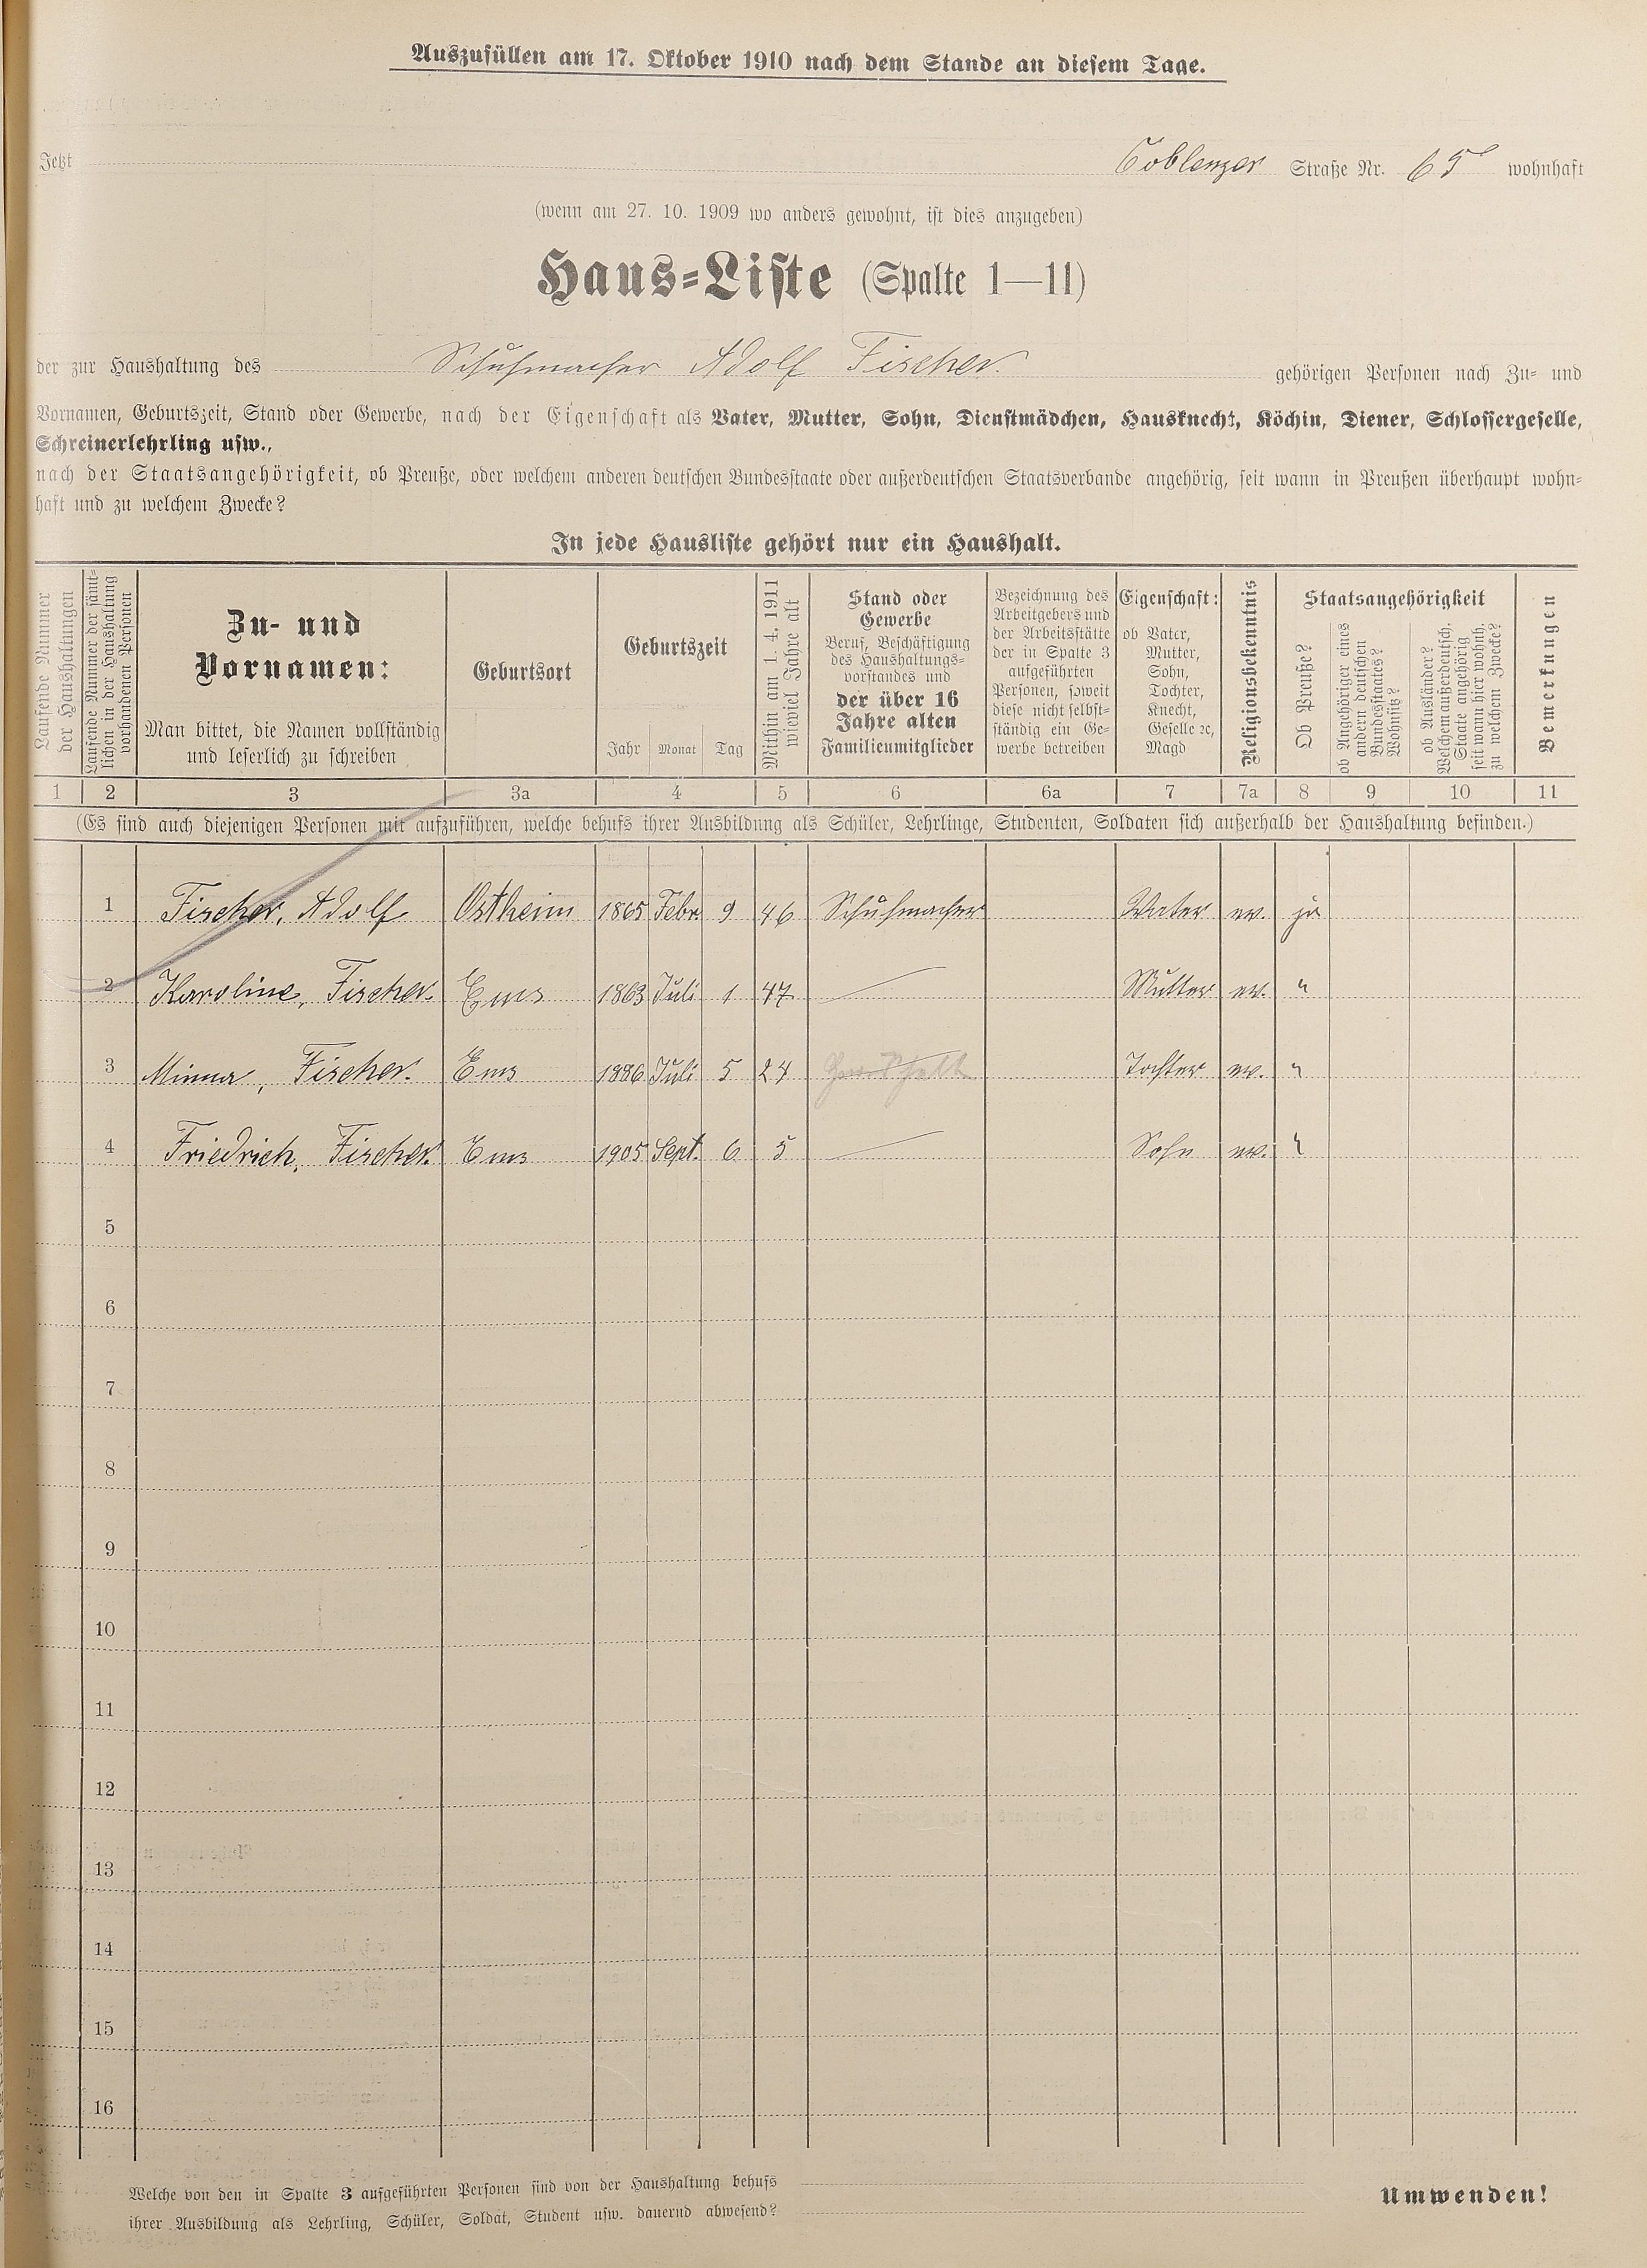 Auszufüllen am 17. Oktober 1910 nach dem Stande an diesem Tage.
Jetzt Coblenzer Straße Nr. 65 wohnhaft
(wenn am 27. 10. 1909 wo anders gewohnt, ist dies anzugeben)
Haus-Liste (Spalte 1—11)
der zur Haushaltung des Schuhmacher Adolf Fischer. gehörigen Personen nach Zu- und
Vornamen, Geburtszeit, Stand oder Gewerbe, nach der Eigenschaft als Vater, Mutter, Sohn, Dienstmädchen, Hausknecht, Köchin, Diener, Schlossergeselle,
Schreinerlehrling usw.,
nach der Staatsangehörigkeit, ob Preuße, oder welchem anderen deutschen Bundesstaate oder außerdeutschen Staatsverbande angehörig, seit wann in Preußen überhaupt wohn-
haft und zu welchem Zwecke?
In jede Hausliste gehört nur ein Haushalt.
Laufende Nummer
der Haushaltungen
Laufende Nummer der sämt-
lichen in der Haushaltung
vorhandenen Personen
Zu- und
Vornamen:
Man bittet, die Namen vollständig
und leserlich zu schreiben
Geburtsort
Geburtszeit
Jahr Monat Tag
Mithin am 1. 4. 1911
wieviel Jahre alt
Stand oder
Gewerbe
Beruf, Beschäftigung
des Haushaltungs-
vorstandes und
der über 16
Jahre alten
Familienmitglieder
Bezeichnung des
Arbeitgebers und
der Arbeitsstätte
der in Spalte 3
aufgeführten
Personen, soweit
diese nicht selbst-
ständig ein Ge-
werbe betreiben
Eigenschaft:
ob Vater,
Mutter,
Sohn,
Tochter,
Knecht,
Geselle ꝛc,
Magd
Religionsbekenntnis
Staatsangehörigkeit
Ob Preuße?
ob Angehöriger eines
andern deutschen
Bundesstaates?
Wohnsitz?
ob Ausländer?
Welchem außerdeutsch.
Staate angehörig
seit wann hier wohnh.
zu welchem Zwecke?
Bemerkungen
1 2 3 3a 4 5 6 6a 7 7a 8 9 10 11
(Es sind auch diejenigen Personen mit aufzuführen, welche behufs ihrer Ausbildung als Schüler, Lehrlinge, Studenten, Soldaten sich außerhalb der Haushaltung befinden.)
1 Fischer, Adolf Ostheim 1865 Febr 9 46 Schuhmacher Vater ev. ja
2 Karoline, Fischer. Ems 1863 Juli 1 47 — Mutter ev. "
3 Minna, Fischer. Ems 1886 Juli 5 24 Haushalt Tochter ev. "
4 Friedrich, Fischer. Ems 1905 Sept. 6 5 — Sohn ev. "
5
6
7
8
9
10
11
12
13
14
15
16
Welche von den in Spalte 3 aufgeführten Personen sind von der Haushaltung behufs
ihrer Ausbildung als Lehrling, Schüler, Soldat, Student usw. dauernd abwesend?
Umwenden!